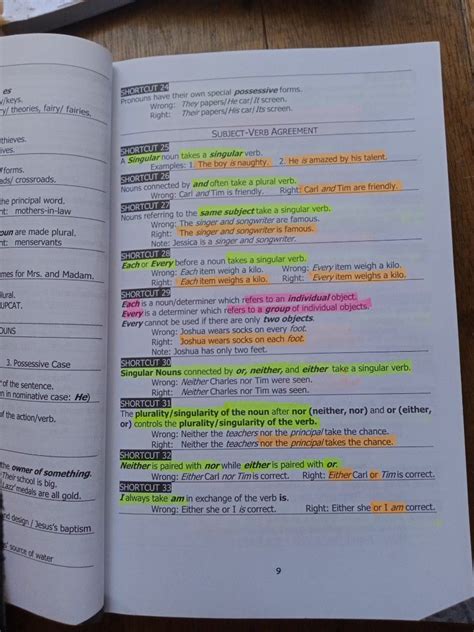 es
y/keys.
ry/ theories, fairy/ fairies.
thieves.
ives.
forms.
ads/ crossroads.
the principal word.
nt: mothers-in-law
oun are made plural.
nt: menservants
mes for Mrs. and Madam.
lural.
UPCAT.
OUNS
3. Possessive Case
of the sentence.
n in nominative case: He)
of the action/verb.
the owner of something.
Their school is big.
Lazz' medals are all gold.
nd design / Jesus's baptism
s' source of water
SHORTCUT 24
Pronouns have their own special possessive forms.
Wrong: They papers/He car/Its screen.
Right: Their papers/His car/Its screen.
SUBJECT-VERB AGREEMENT
SHORTCUT 25
A Singular noun takes a singular verb.
Examples: 1. The boy is naughty. 2. He is amazed by his talent.
SHORTCUT 26
Nouns connected by and often take a plural verb.
Wrong: Carl and Tim is friendly. Right: Carl and Tim are friendly.
SHORTCUT 27
Nouns referring to the same subject take a singular verb.
Wrong: The singer and songwriter are famous.
Right: The singer and songwriter is famous.
Note: Jessica is a singer and songwriter.
SHORTCUT 28
Each or Every before a noun takes a singular verb.
Wrong: Each item weigh a kilo. Wrong: Every item weigh a kilo.
Right: Each item weighs a kilo. Right: Every item weighs a kilo.
SHORTCUT 29
Each is a noun/determiner which refers to an individual object.
Every is a determiner which refers to a group of individual objects.
Every cannot be used if there are only two objects.
Wrong: Joshua wears socks on every foot.
Right: Joshua wears socks on each foot.
Note: Joshua has only two feet.
SHORTCUT 30
Singular Nouns connected by or, neither, and either take a singular verb.
Wrong: Neither Charles nor Tim were seen.
Right: Neither Charles nor Tim was seen.
SHORTCUT 31
The plurality/singularity of the noun after nor (neither, nor) and or (either,
or) controls the plurality/singularity of the verb.
Wrong: Neither the teachers nor the principal take the chance.
Right: Neither the teachers nor the principal takes the chance.
SHORTCUT 32
Neither is paired with nor while either is paired with or.
Wrong: Either Carl nor Tim is correct. Right: Either Carl or Tim is correct.
SHORTCUT 33
I always take am in exchange of the verb is.
Wrong: Either she or I is correct. Right: Either she or I am correct.
9